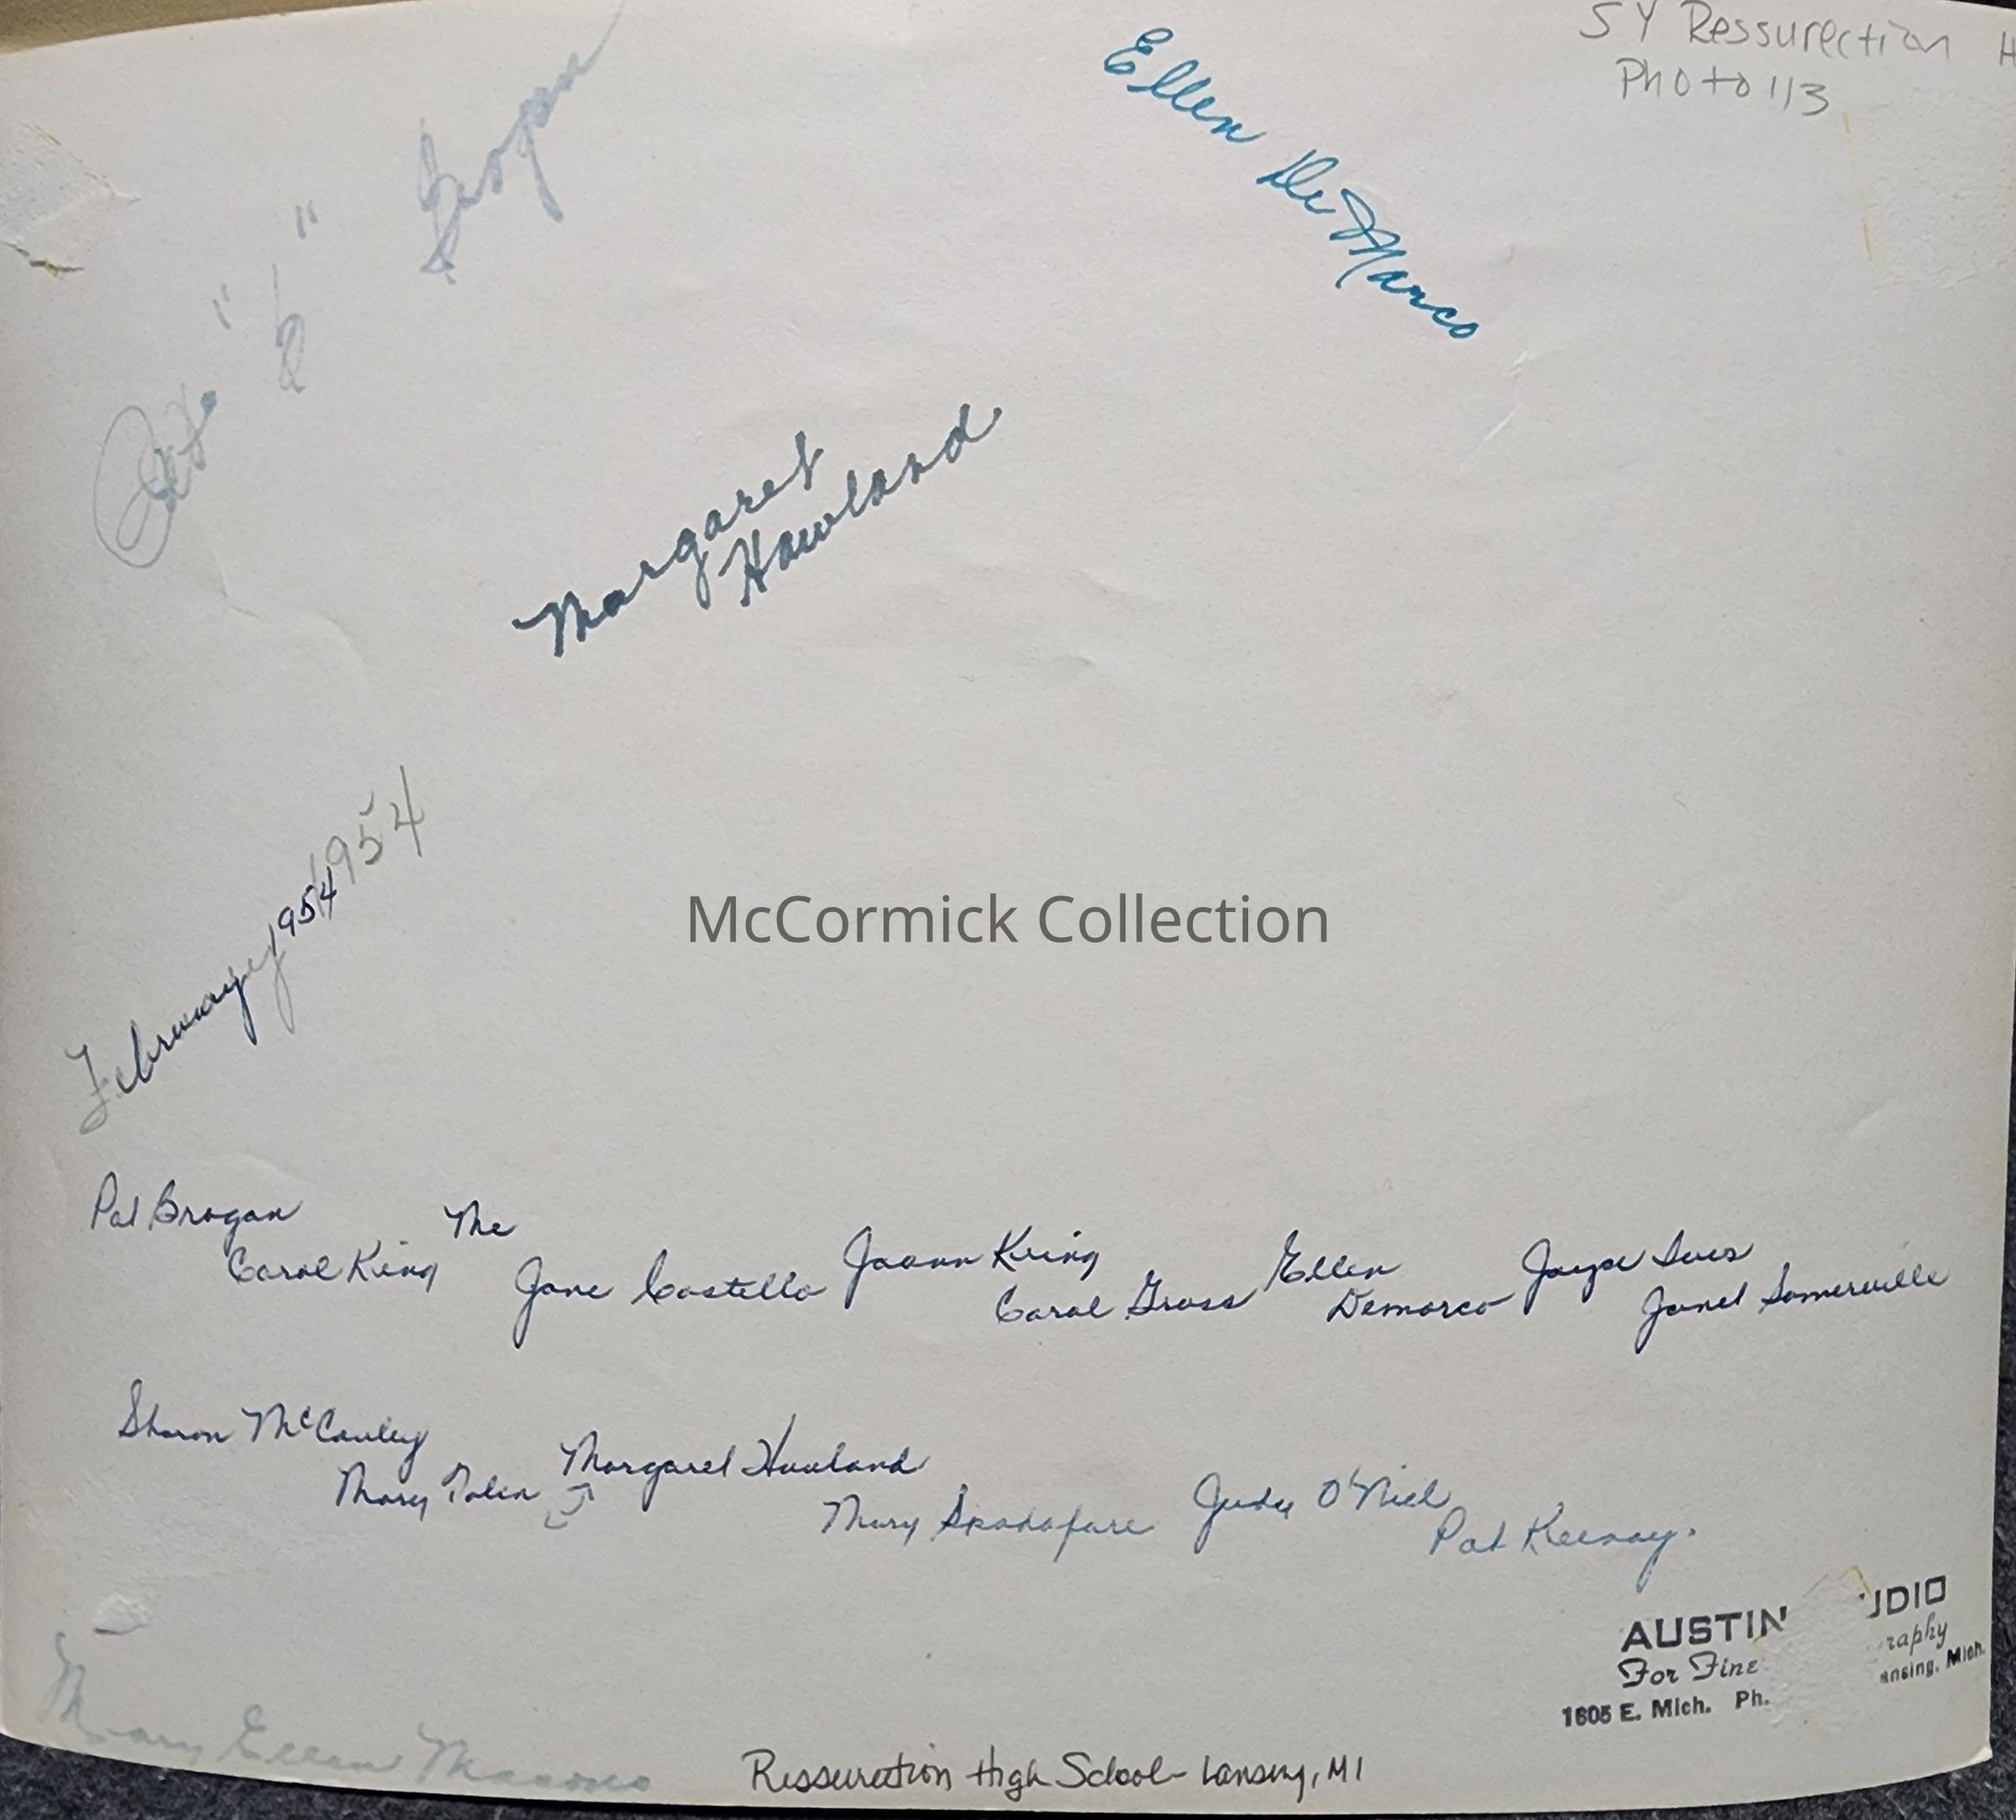 5 Y Ressurection H
Photo 113
Ellen De Marco
Pat " b " Brogan
Margaret
Howland
February 1954 1954
McCormick Collection
Pat Brogan
Carol King
The
Jane Costello
Joann Kring
Carol Gross
Ellen
Demarco
Joyce Ives
Janet Somerville
Sharon McCauley
Mary Tolin
Margaret Howland
Mary Spadafore
Judy O'Niel
Pat Keenay.
AUSTIN UDIO
For Fine raphy
1605 E. Mich. Ph. ansing, Mich.
Mary Ellen
Ressurection High School - Lansing, MI